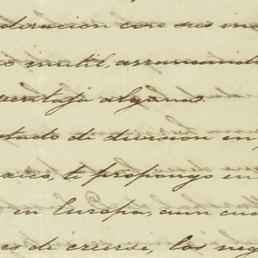 deracion con sus in
o inutil, arruinand
ventaja alguna.
stado de division en
aico, te propongo en
en Europa, aun cua
es de creerse, los neg